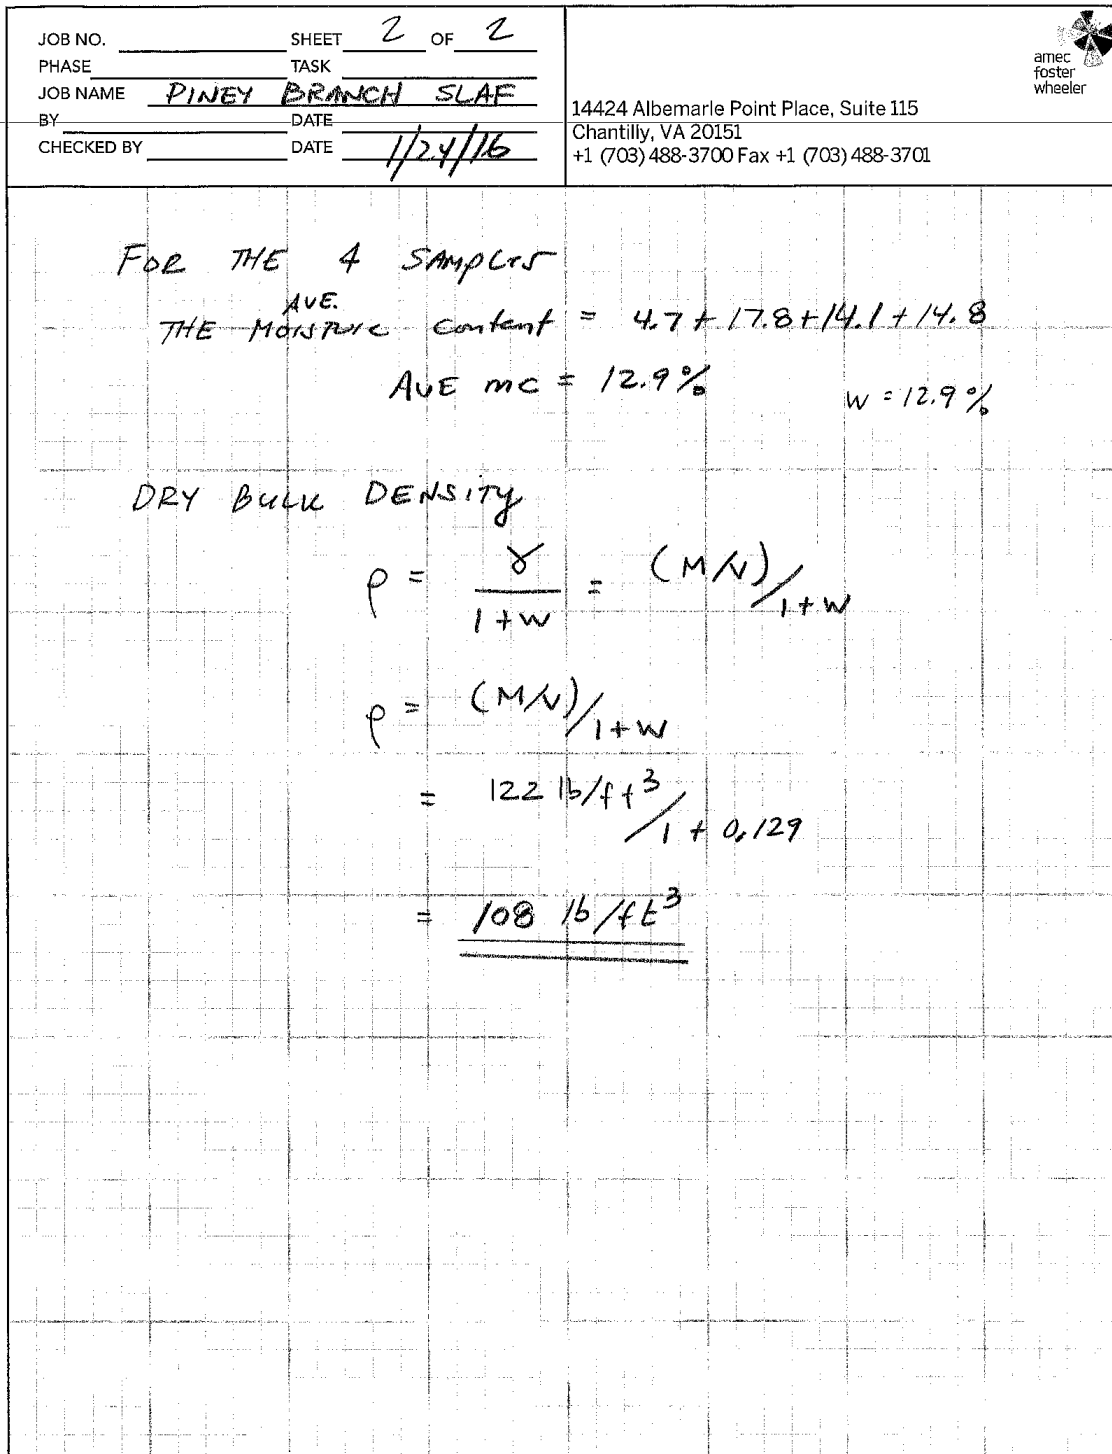 JOB NO. SHEET 2 OF 2
PHASE TASK
JOB NAME PINEY BRANCH SLAF
BY DATE
CHECKED BY DATE 1/24/16
amec
foster
wheeler
14424 Albemarle Point Place, Suite 115
Chantilly, VA 20151
+1 (703) 488-3700 Fax +1 (703) 488-3701
FOR THE 4 SAMPLES
AVE.
THE MOISTURE content = 4.7 + 17.8 + 14.1 + 14.8
AVE mc = 12.9% w = 12.9%
DRY BULK DENSITY
ρ = γ / 1+w = (M/V) / 1+w
ρ = (M/V) / 1+w
= 122 lb/ft³ / 1 + 0.129
= 108 lb/ft³